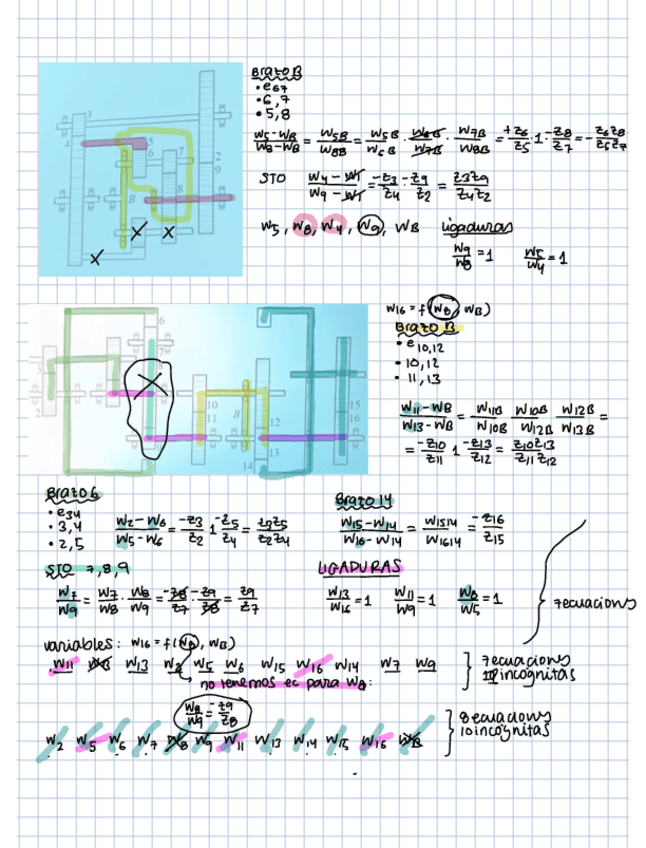 Brazo B
• e67
• 6, 7
• 5, 8
w5-wB/w8-wB = w5B/w8B = w5B/w6B · w6B/w7B · w7B/w8B = +z6/z5 · 1 · -z8/z7 = - z6z8/z5z7
STO w4-w1/w9-w1 = -z3/z4 · -z9/z2 = z3z9/z4z2
w5, w8, w4, w9, wB ligaduras
w9/w8 = 1 w5/w4 = 1
3
4
5
6
7
2
9
8
B
w16 = f(w8, wB)
Brazo B
• e10,12
• 10,12
• 11,13
w11-wB/w13-wB = w11B/w10B w10B/w12B w12B/w13B =
= -z10/z11 1 -z13/z12 = z10z13/z11z12
6
3
7
2
10
11
B
12
13
14
15
16
Brazo 6
• e34
• 3,4
• 2,5
w2-w6/w5-w6 = -z3/z2 1 -z5/z4 = z3z5/z2z4
Brazo 14
w15-w14/w16-w14 = w1514/w1614 = -z16/z15
STO 7,8,9
w7/w9 = w7/w8 · w8/w9 = -z8/z7 · -z9/z8 = z9/z7
LIGADURAS
w13/w16 = 1 w11/w9 = 1 w8/w5 = 1
7ecuacions
variables: w16 = f(w8, wB)
w11 wB w13 w2 w5 w6 w15 w16 w14 w7 w9
7 ecuacions
incognitas
no tenemos ec para w8:
w8/w9 = -z9/z8
w2 w5 w6 w7 w8 w9 w11 w13 w14 w15 w16 wB
8 ecuacions
10 incognitas